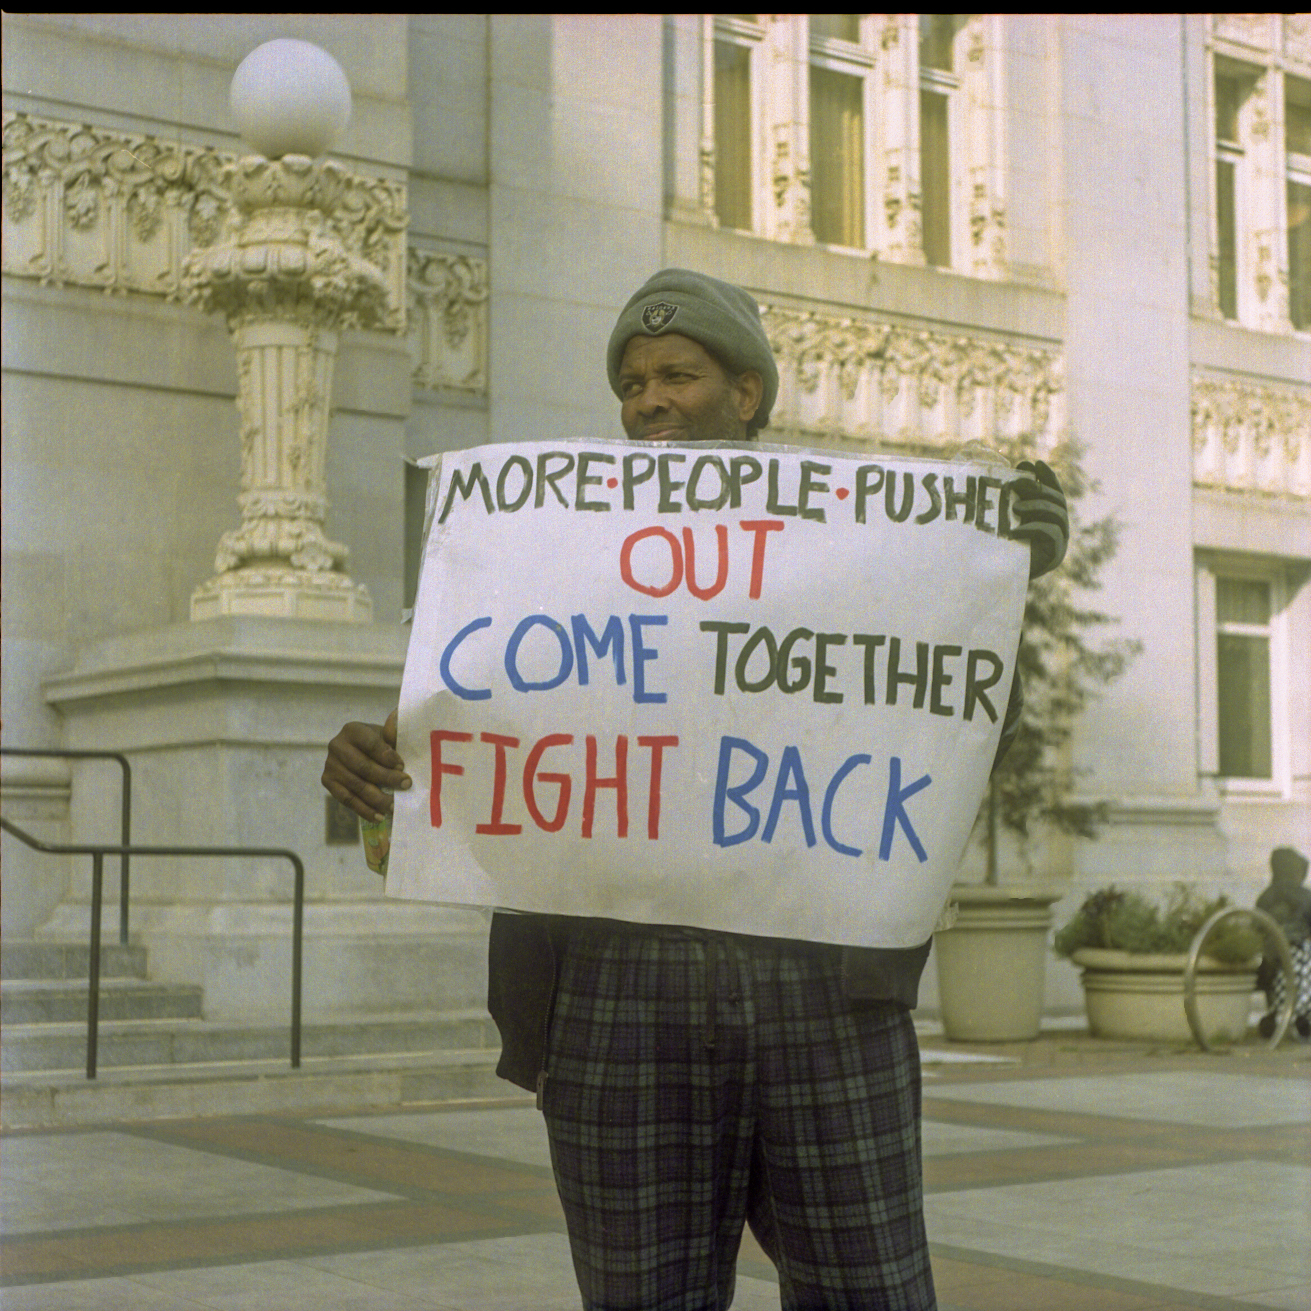 MORE·PEOPLE·PUSHED
OUT
COME TOGETHER
FIGHT BACK